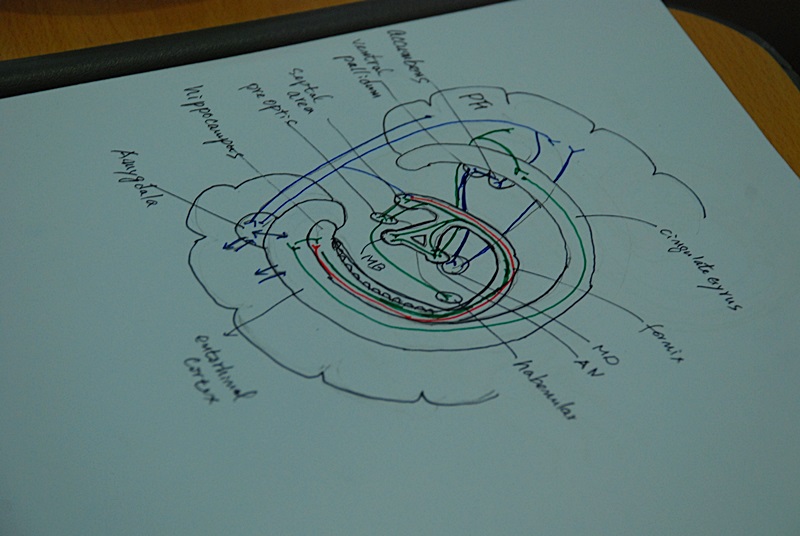 accumbens
ventral
pallidum
septal
area
preoptic
hippocampus
Amygdala
MB
cingulate gyrus
fornix
MD
AN
habenular
entorhinal
cortex